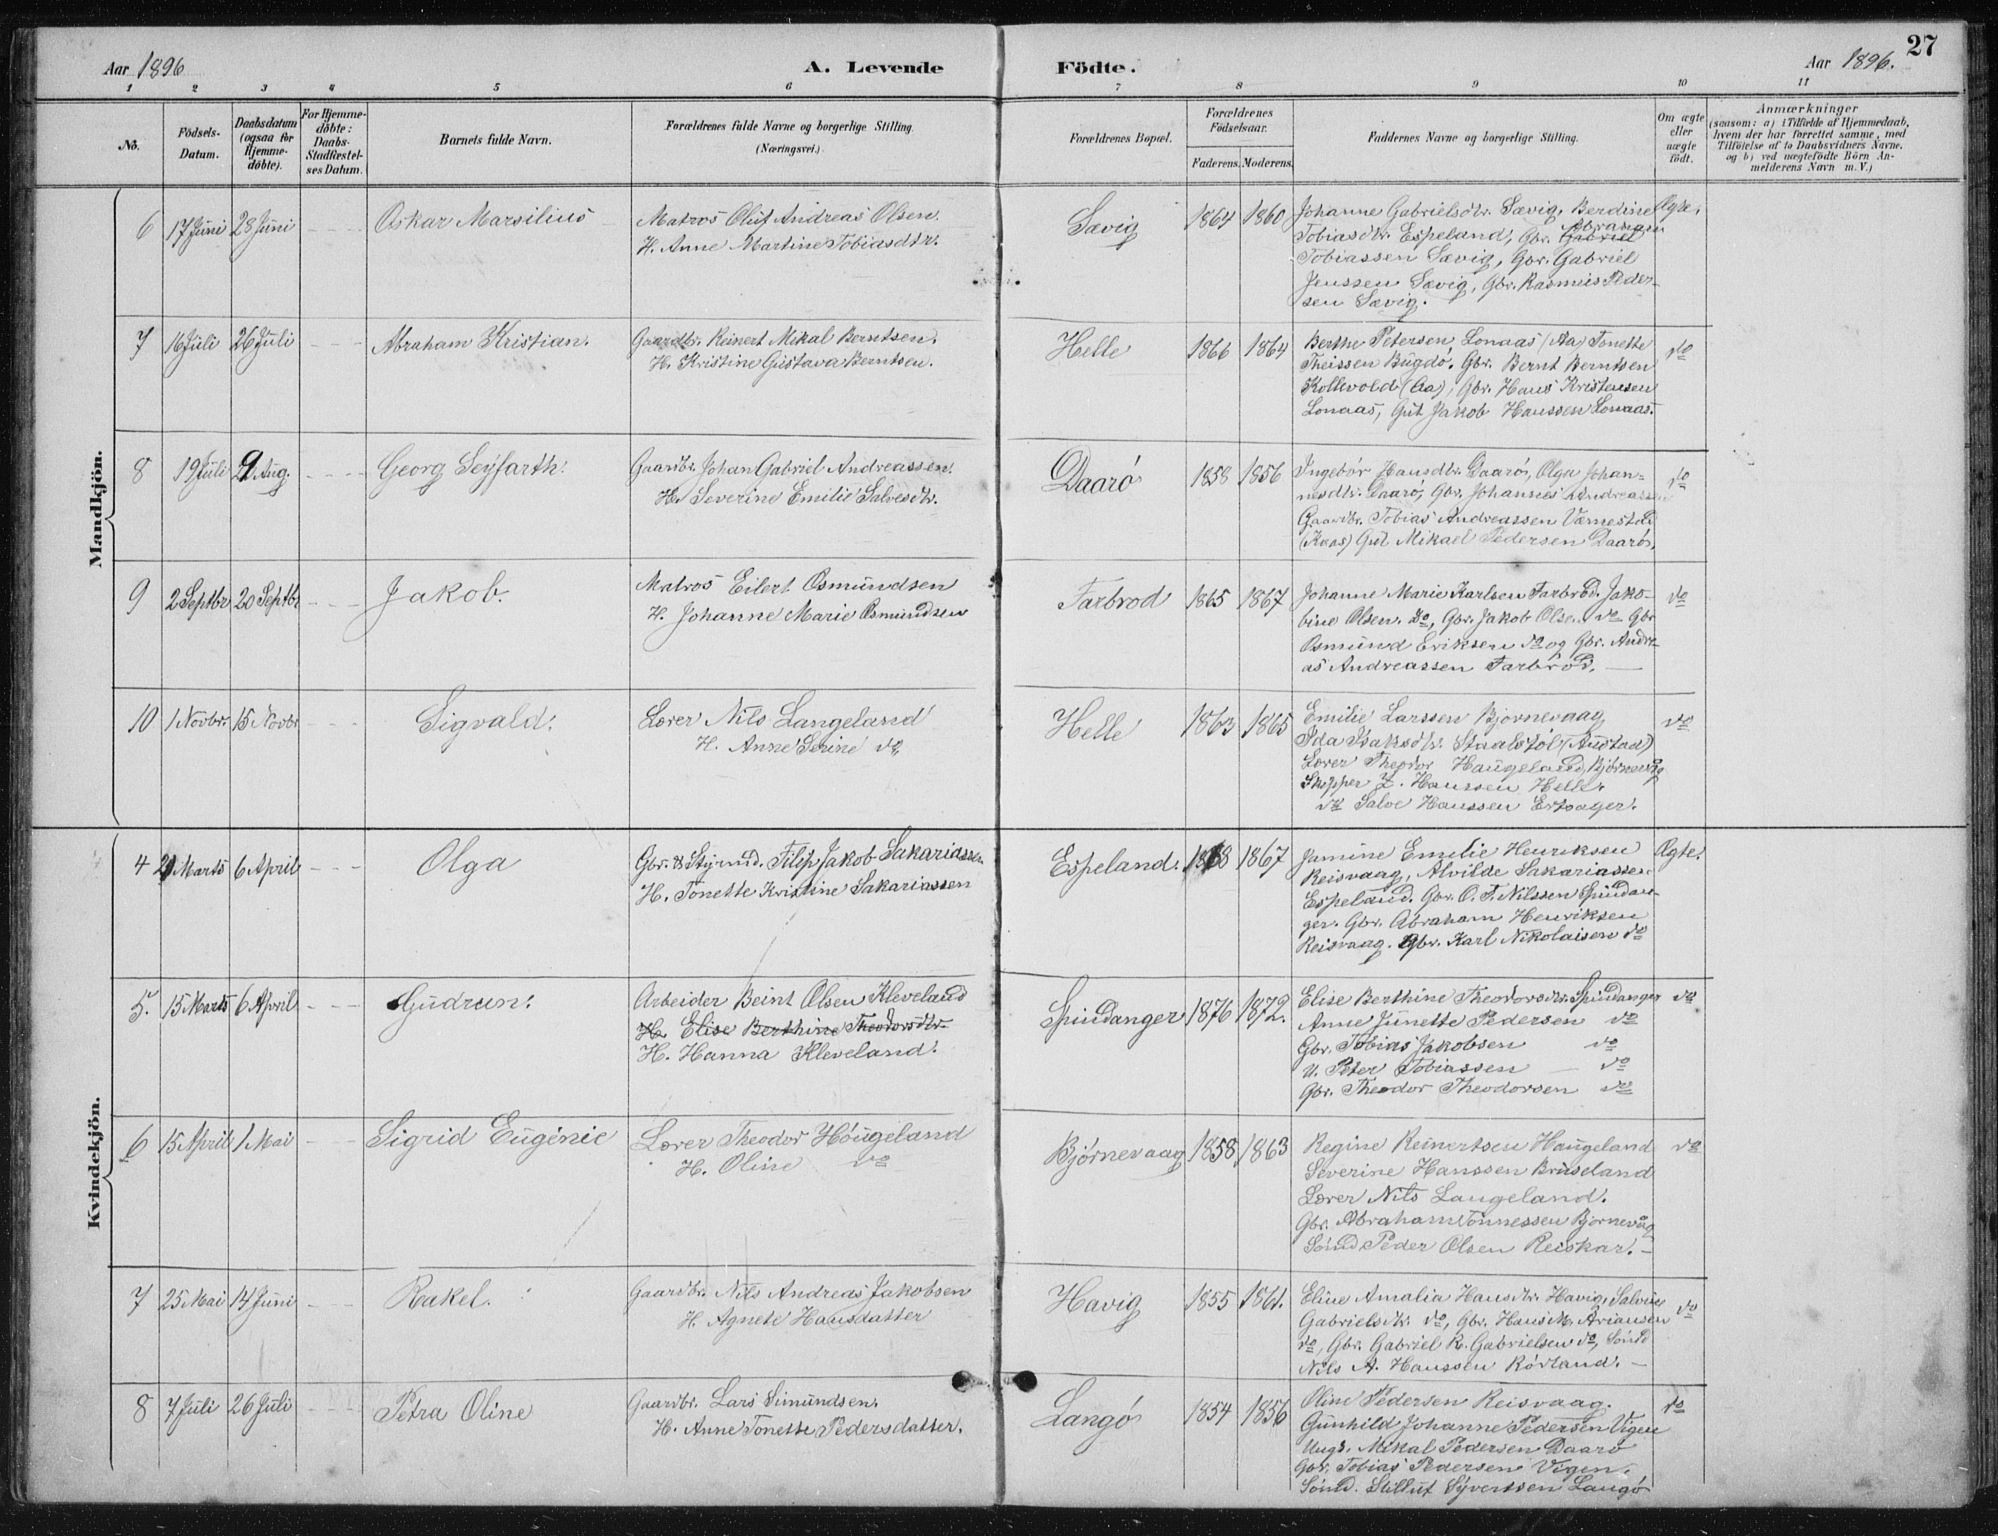 27
Aar 1896
A. Levende Födte.
Aar 1896.
1 2 3 4 5 6 7 8 9 10 11
No.
Födsels-
Datum.
Daabsdatum
(ogsaa for
Hjemme-
döbte).
For Hjemme-
döbte:
Daabs-
Stadfæstel-
ses Datum.
Barnets fulde Navn.
Forældrenes fulde Navne og borgerlige Stilling.
(Næringsvei.)
Forældrenes Bopæl.
Forældrenes
Födselsaar.
Faderens. Moderens.
Faddernes Navne og borgerlige Stilling.
Om ægte
eller
uægte
födt.
Anmærkninger
(saasom: a) i Tilfælde af Hjemmedaab,
hvem der har forrettet samme, med
Tilföielse af to Daabsvidners Navne.
og b) ved uægtefödte Börn An-
melderens Navn m. V.)
Mandkjön.
6 17 Juni 28 Juni Oskar Marsilius
Matros Oluf Andreas Olsen.
H. Anne Martine Tobiasdtr.
Sævig 1864 1860
Johanne Gabrielsdtr. Sævig, Berdine
Tobiasdtr. Espeland, Gbr. Gabriel Abrahamsen
Tobiassen Sævig, Gbr. Gabriel
Jenssen Sævig, Gbr. Rasmus Peder-
sen Sævig.
Ægte.
7 16 Juli 26 Juli Abraham Kristian.
Gaardbr. Reinert Mikal Berntsen.
H. Kristine Gustava Berntsen.
Helle 1866 1864
Berthe Petersen, Lonaas (Aa) Tonette
Theissen Bugdø. Gbr. Bernt Berntsen
Kollevold (Aa), Gbr. Hans Kristensen
Lonaas, Gut Jakob Hanssen Lonaas.
do
8 19 Juli 9 Aug. Georg Seyfarth.
Gaardbr. Johan Gabriel Andreassen.
H. Severine Emilie Salvesdtr.
Daarø 1858 1856
Ingebør Hansdtr. Daarø, Olga Johan-
nesdtr. Daarø, Gbr. Johannes Andreassen
Gaardbr. Tobias Andreassen Værnestad
(Kaas) Gut Mikael Pedersen Daarø.
do
9 2 Septbr 20 Septbr Jakob.
Matros Eilert Osmundsen
H. Johanne Marie Osmundsen
Farbrod 1865 1867
Johanne Marie Karlsen Farbrod. Jako-
bine Olsen. Do, Gbr. Jakob Olsen do Gbr
Osmund Eriksen do og Gbr. Andre-
as Andreassen Farbrod.
do
10 1 Novbr. 15 Novbr Sigvald.
Lærer Nils Langeland
H. Anne Serine do
Helle 1863 1865
Emilie Larssen Bjørnevaag
Ida Isaksdtr. Staalstøl (Austad)
Lærer Theodor Haugeland, Bjørnevaag
Skipper Z. Hanssen Helle.
do Salve Hanssen Ertsager.
do
Kvindekjön.
4 Marts 6 April Olga
Gbr. & Styrmd. Filip Jakob Sakariassen
H. Tonette Kristine Sakariassen
Espeland. 1867
Jamine Emilie Henriksen
Reisvaag, Alvilde Sakariassen
Espeland. Gbr. O. T. Nilssen Spindan-
ger. Gbr. Abraham Henriksen
Reisvaag. Gbr. Karl Nikolaisen do
Ægte.
5. 15 Marts 6 April Gudrun.
Arbeider Beint Olsen Kleveland
H. Elise Berthine Theodorsdtr.
H. Hanna Kleveland.
Spindanger 1876 1872.
Elise Berthine Theodorsdtr. Spindanger
Anne Junette Pedersen do
Gbr. Tobias Jakobsen do
U. Peter Tobiassen — do
Gbr. Theodor Theodorsen do
do
6 15 April 1 Mai Sigrid Eugénie
Lærer Theodor Haugeland
H. Oline do
Bjørnevaag 1858 1863
Regine Reinertsen Haugeland
Severine Hanssen Bruseland
Lærer Nils Langeland.
Gbr. Abraham Tønnessen Bjørnevåg
Sømd Peder Olsen Reiskar.
do
7 25 Mai 14 Juni Rakel.
Gaardbr. Nils Andreas Jakobsen
H. Agnete Hansdatter
Havig 1855 1861.
Eline Amalia Hansdtr. Havig, Salvine
Gabrielsdtr. do, Gbr. Hans M. Ariansen
do, Gbr. Gabriel R. Gabrielsen do, Sømd
Nils A. Hanssen Rørland.
do
8 7 Juli 26 Juli Petra Oline
Gaardbr. Lars Simundsen.
H. Anne Tonette Pedersdatter.
Langø 1854 1856
Oline Pedersen Reisvaag.
Gunhild Johanne Pedersen Vigen
Ungk. Mikal Pedersen Daarø
Gbr. Tobias Pedersen Vigen.
Sømd. Stillut Syvertsen Langø
do